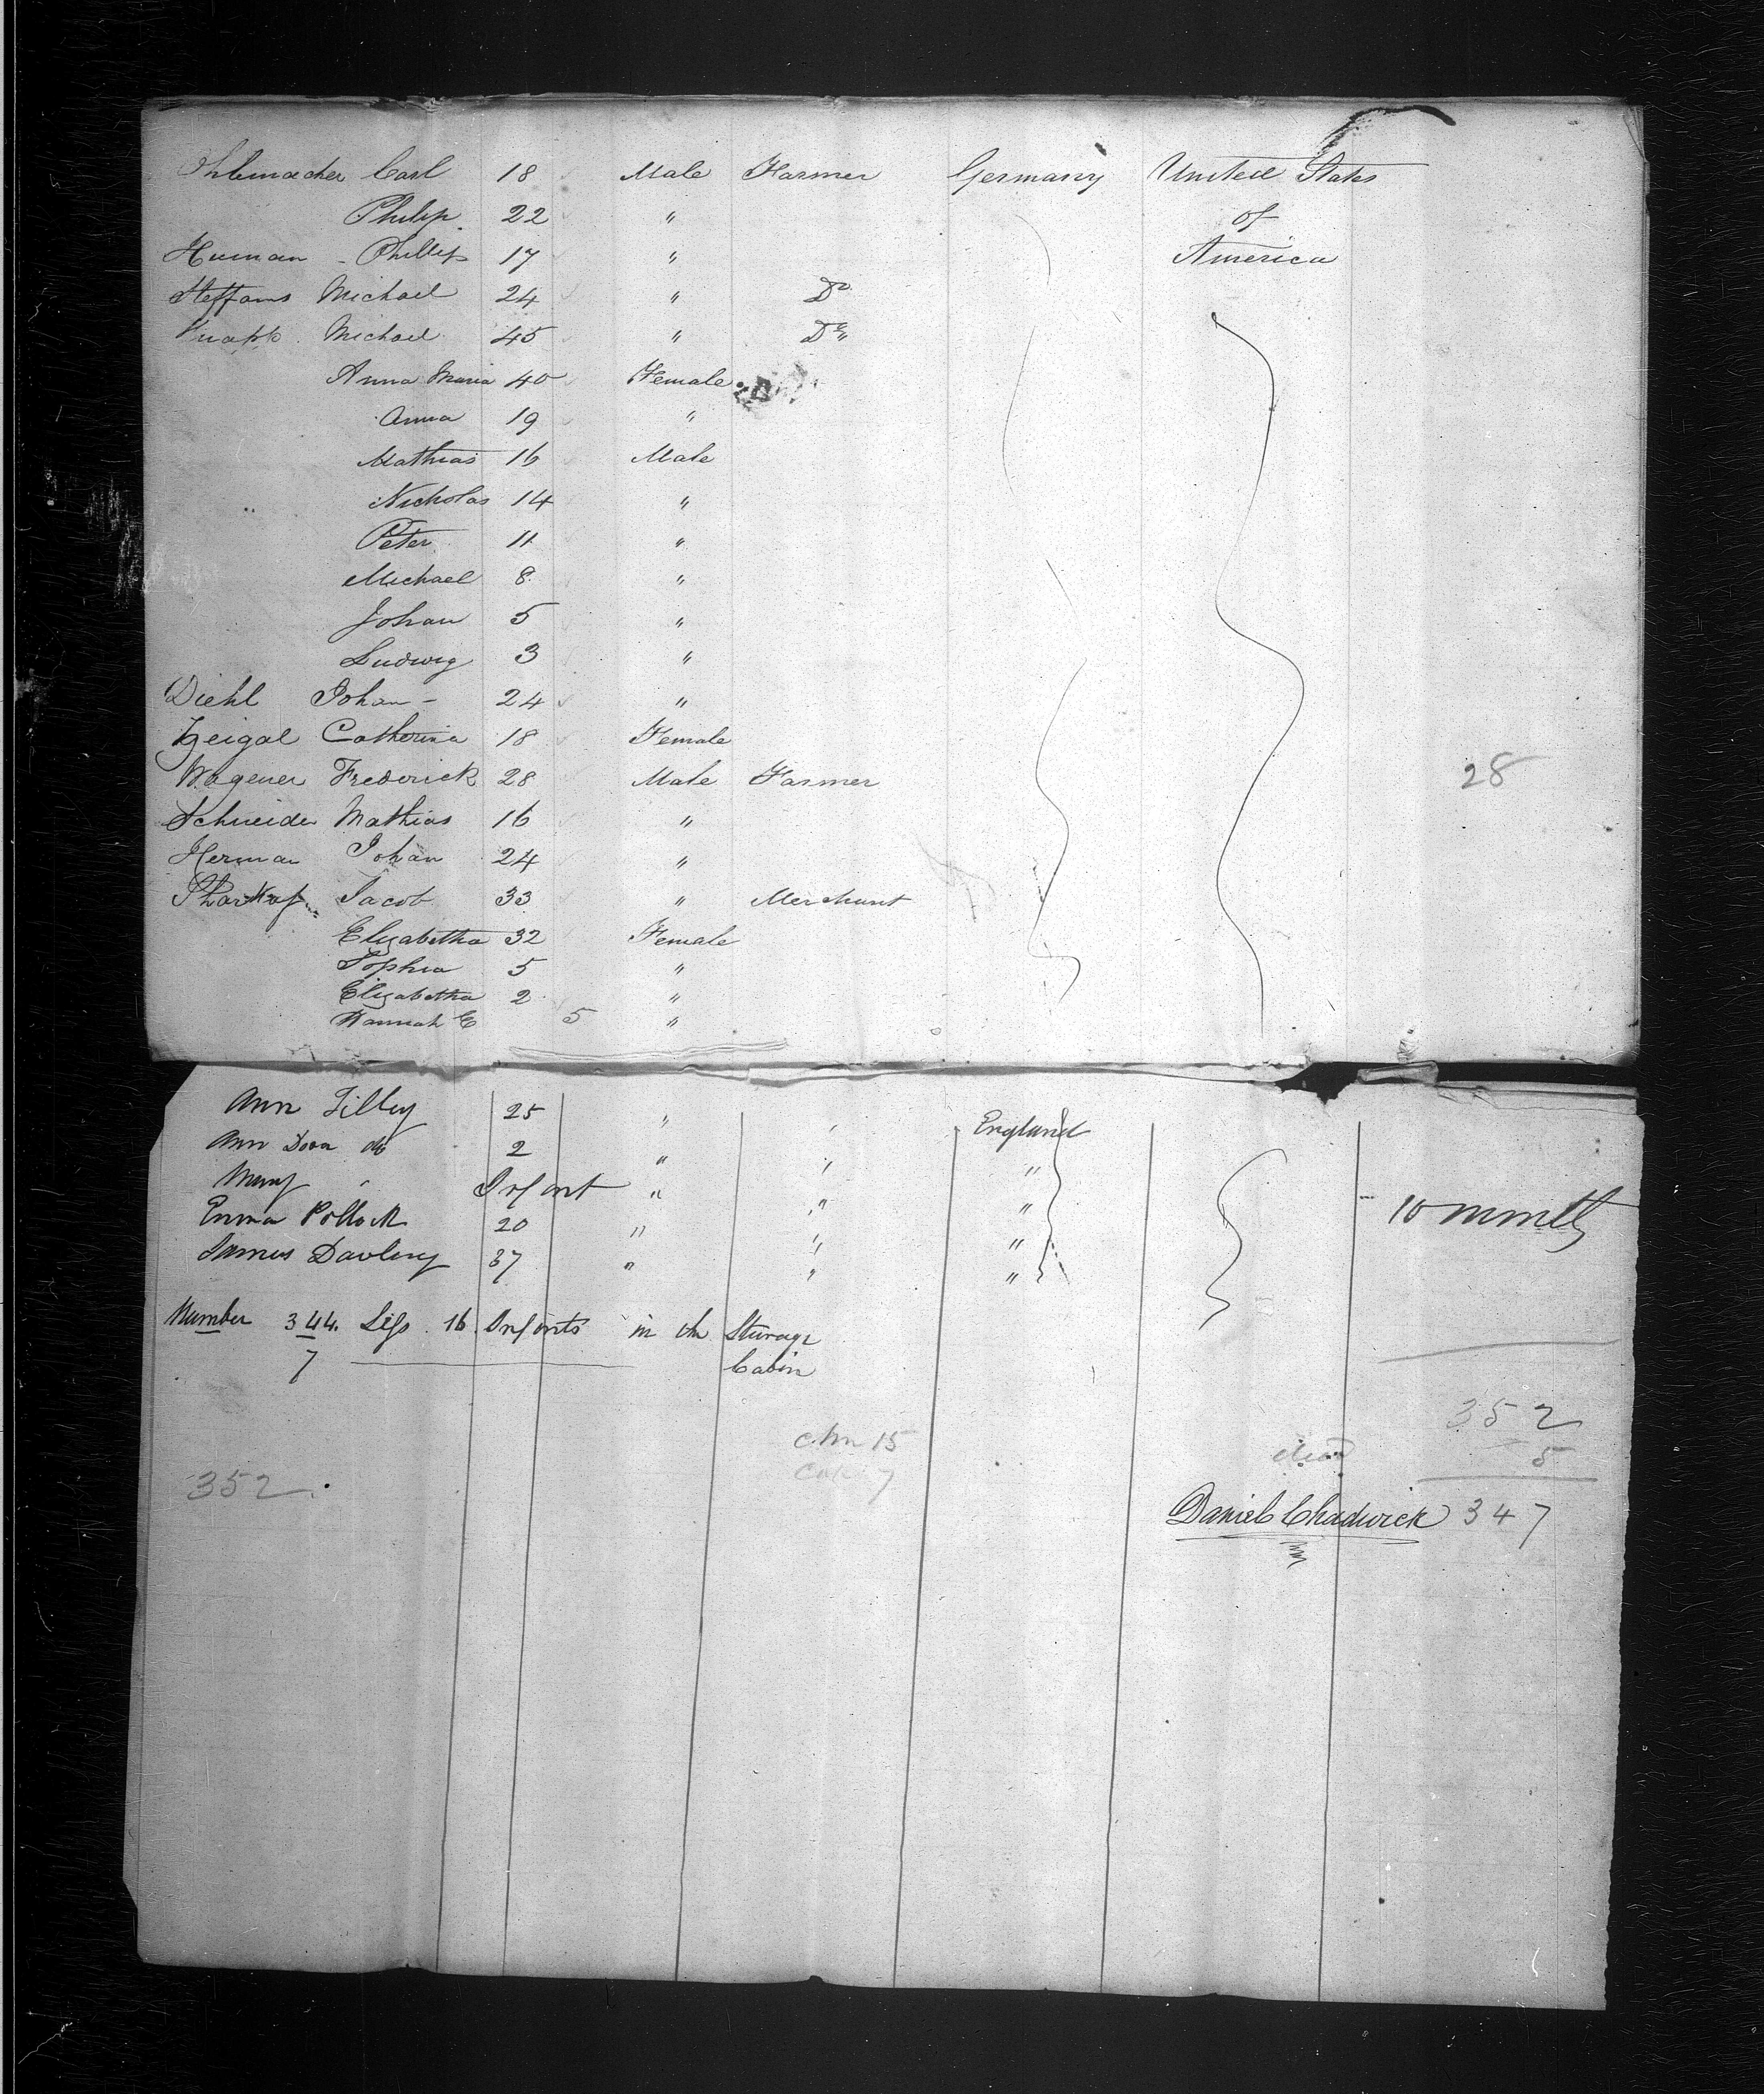 Carl 18 Male Farmer Germany United States
Philip 22 " of
Human - Phillip 17 " America
Steffans Michael 24 " Do
Knapp Michael 45 " Do "
Anna Maria 40 Female
Anna 19 "
Mathias 16 Male
Nicholas 14 "
Peter 11 "
Michael 8 "
Johan 5 "
Ludwig 3 "
Diehl Johan - 24 "
Zeigal Catherina 18 Female
Wagener Frederick 28 Male Farmer 28
Schneider Mathias 16 "
Herman Johan 24 "
Jacob 33 " Merchant
Elizabetha 32 Female
Sophia 5 "
Elizabetha 2 "
Hannah E 5 "
Ann Tilley 25 " " England
Ann Dora do 2 " " "
Mary " Infant " " " 10 months
Emma Pollock 20 " " "
James 37 " " "
Number 344. 16 Infants in the Sturage
7 Cabin
352
5
352
Daniel Chadwick 347